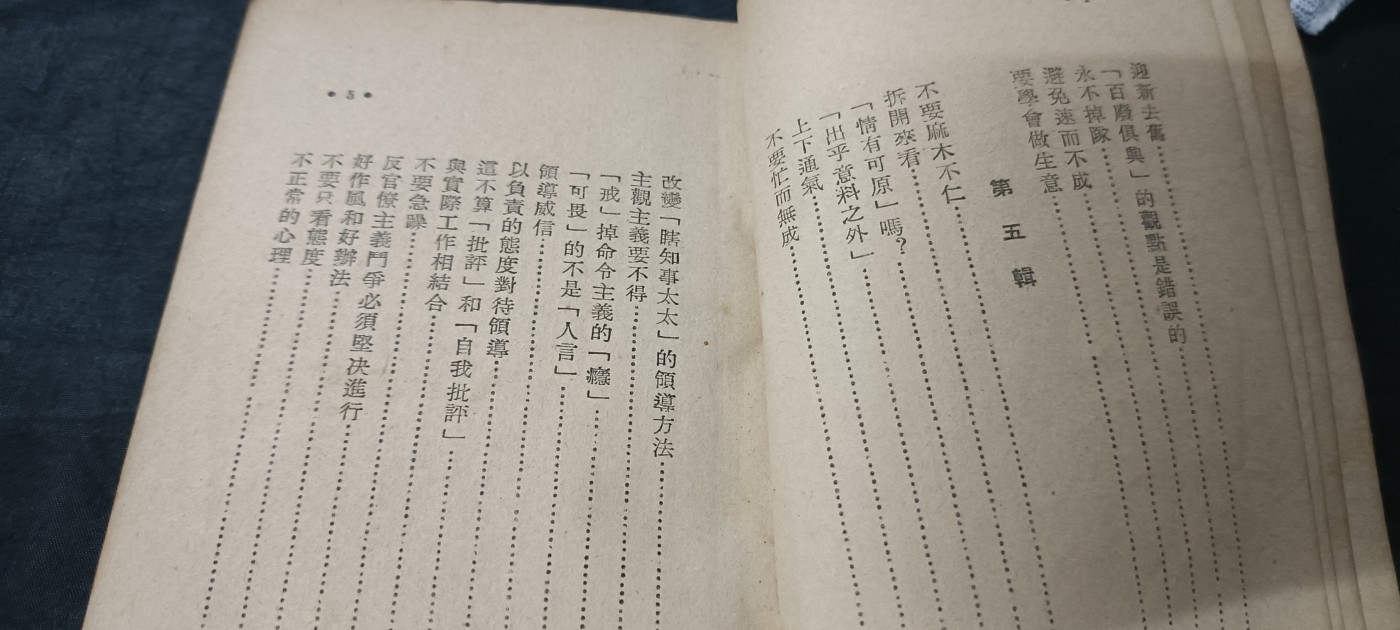 迎新去舊
「百廢俱興」的觀點是錯誤的
永不掉隊
避免速而不成
要學會做生意
第五輯
不要麻木不仁
拆開來看
「情有可原」嗎?
「出乎意料之外」
上下通氣
不要忙而無成
改變「瞎知事太太」的領導方法
主觀主義要不得
「戒」掉命令主義的「癮」
「可畏」的不是「人言」
領導威信
以負責的態度對待領導
這不算「批評」和「自我批評」
與實際工作相結合
不要急躁
反官僚主義鬥爭必須堅决進行
好作風和好辦法
不要只看態度
不正常的心理
• 5 •